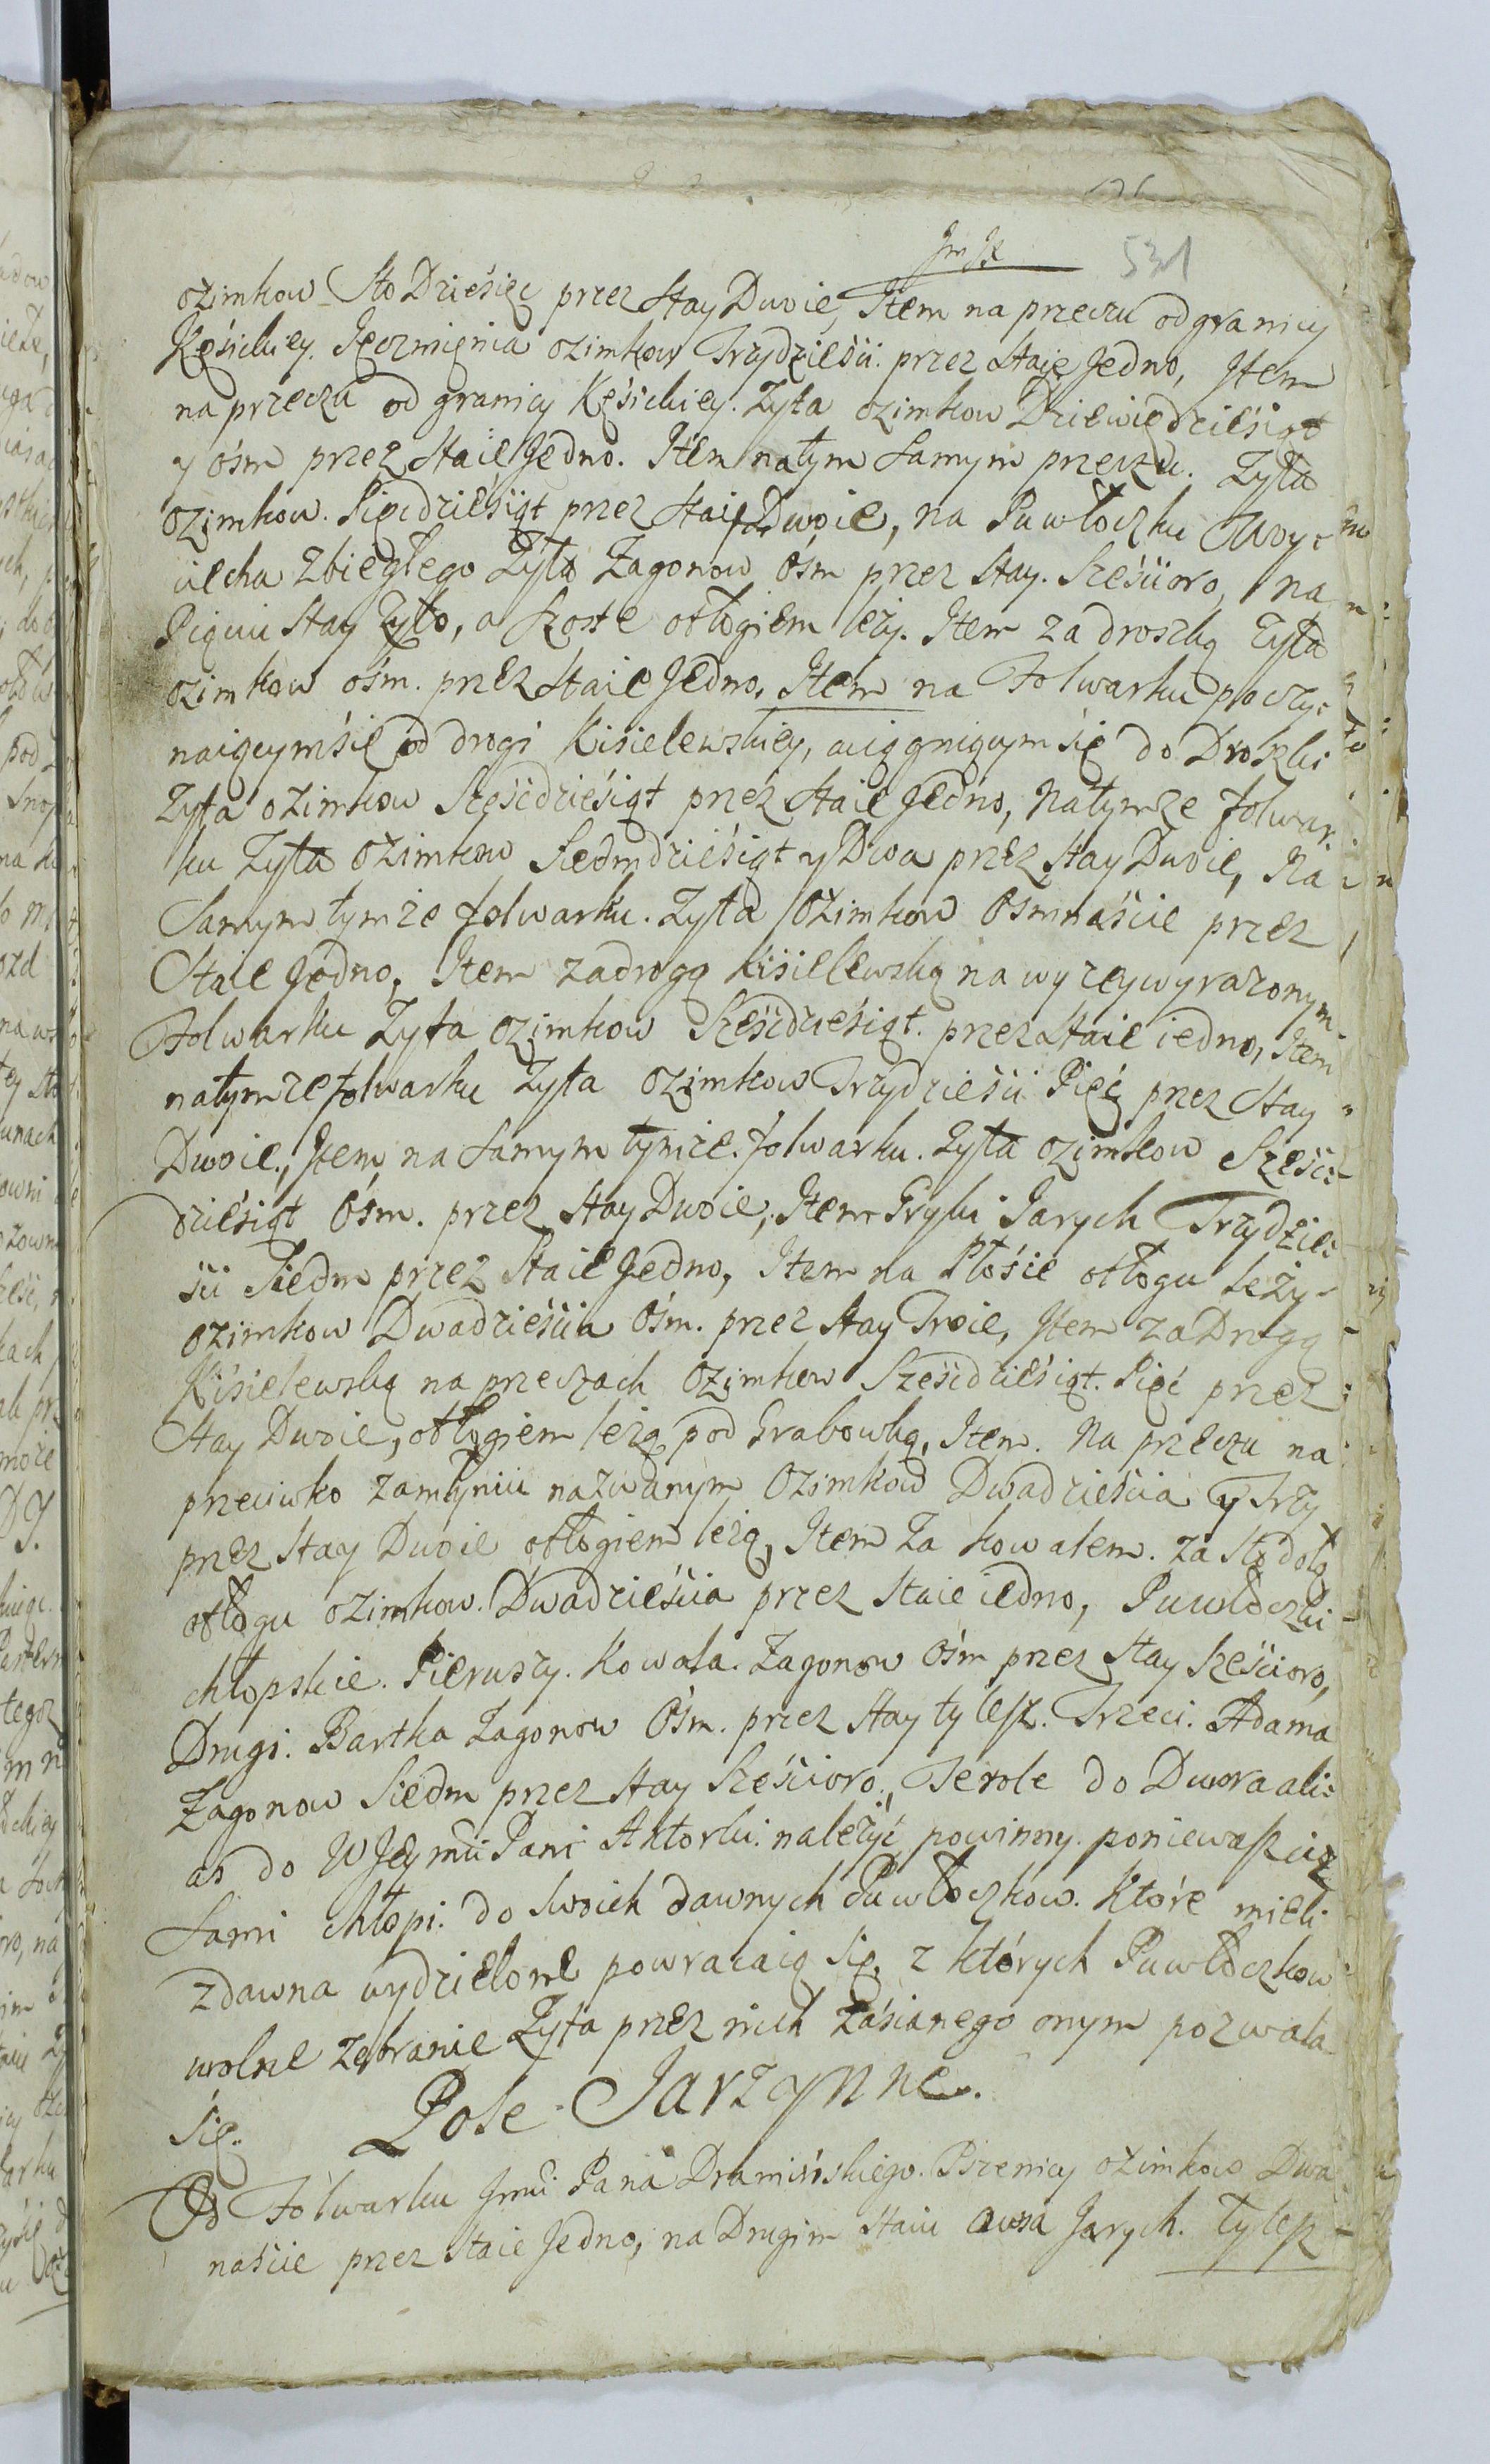 531
ozimkow Sto Dziesięc przez Stay Dwoie, Item na przeczu od granicy
Kęsickiey. Jęczmięnia ozimkow Trzydzieści. przez Staię Jedno, Item
na przeczu od granicy Kęsickiey. Zyta ozimkow Dziewiędziesiąt
y ośm przez Staie Jedno. Item natym samym przeczu. Zyta
Ozimkow. Pięcdziesiąt przez Staie Dwoie, na Puwłoczku Woy=
ciecha Zbiegłego Zyta Zagonow Ośm przez Stay. Sześcioro, na
Piąciu Stay Zyto, a Szoste obłogiem leży. Item za droszką Zyta
ozimkow ośm. przez Staie Jedno. Item na Folwarku poczy=
naiącym się od drogi Kisielewskiey, ciągnigcym się do Droszki
Zyta ozimkow Sześcdziesiąt przez Staie Jedno, Natymze folwar,
ku Zyta Ozimkow Siedmdziesiąt y Dwa przez Stay Dwoie, Na
Samym tymze folwarku. Zyta Ozimkow Osmnaście przez
Staie Jedno, Item zadrogą Kisielewską na wyzeywyrazonym
Folwarku Zyta Ozimkow Sześcdziesiąt. przez Staie iedno, Item
natymze folwarku Zyta Ozimkow Trzydzieści Pięć przez Stay
Dwoie, Item na Samym tymze. folwarku. Zyta ozimkow Sześc=
dziesiąt Ośm. przez Stay Dwoie, Item Gryki Jarych Trzydzieś
ści Siedm przez Staie Jedno, Item na Płosie obłogu leży
ozimkow Dwadzieścia Ośm. przez Stay Troie, Item za Drogą
Kisielewską na przeczach Ozimkow Sześcdziesiąt. Pięć przez
Stay Dwoie, obłogiem leżą pod Grabowką, Item. Na przeczu na
przeciwko zamłyniu nazwanym Ozimkow Dwadzieścia y Trzy
przez Stay Dwoie obłogiem leżą, Item Za kowalem. za Stodołą
obłogu ozimkow. Dwadzieścia przez Staie iedno, Puwłoczki
chłopskie. Pierwszy. Kowala. Zagonow Ośm przez Stay Sześcioro,
Drugi. Bartka Zagonow Ośm. przez Stay tylesz. Trzeci. Adama
Zagonow Siedm przez Stay Sześcioro, Te role do Dwora ali=
as do WJeymci Pani Aktorki. należyć powinny. poniewasz ciz
Sami chłopi. do Swoich dawnych Puwłoczkow. Które mieli
zdawna wydzielone powracaią się, z których Puwłoczkow
wolne Zebranie Zyta przez nich Zasianego onym pozwala
Się.
Pole Jarzynne.
Od Folwarku Jmci Pana Dramińskiego. Pszenicy ozimkow Dwa
naście przez Staie Jedno, na Drugim Staiu Owsa Jarych. Tylesz